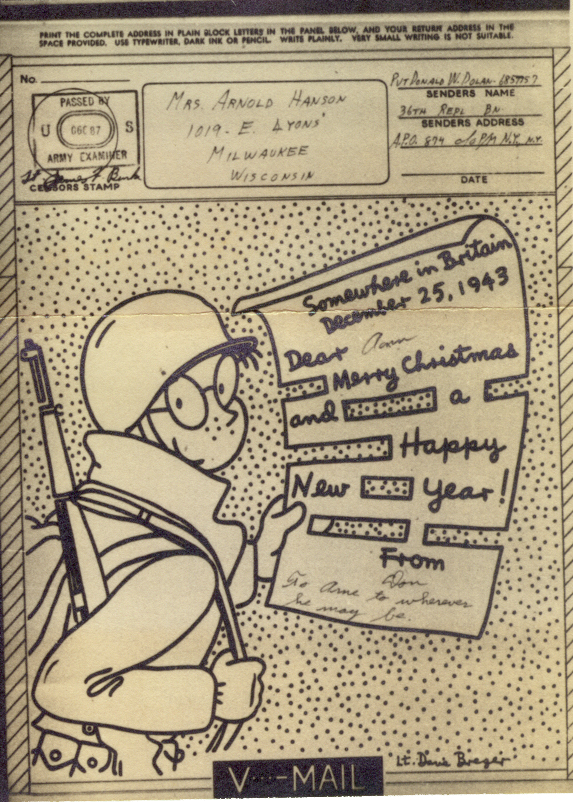 PRINT THE COMPLETE ADDRESS IN PLAIN BLOCK LETTERS IN THE PANEL BELOW, AND YOUR RETURN ADDRESS IN THE
SPACE PROVIDED. USE TYPEWRITER, DARK INK OR PENCIL. WRITE PLAINLY. VERY SMALL WRITING IS NOT SUITABLE.
No.
PASSED BY
U S
ARMY EXAMINER
CENSORS STAMP
MRS. ARNOLD HANSON
1019 - E. LYONS
MILWAUKEE
WISCONSIN
PVT DONALD W. DOLAN
SENDERS NAME
36TH REPL BN
SENDERS ADDRESS
A.P.O. 874 c/o P/M N.Y. N.Y.
DATE
Somewhere in Britain
December 25, 1943
Dear
Merry Christmas
and a
Happy
New Year!
From
Don
To Arne to wherever
he may be.
V···-MAIL
Lt. Dave Breger